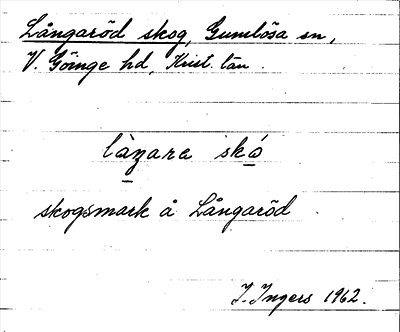 Långaröd skog, Gumlösa sn,
V. Göinge hd, Krist. län.
làŋara skó
skogsmark å Långaröd
I. Ingers 1962.